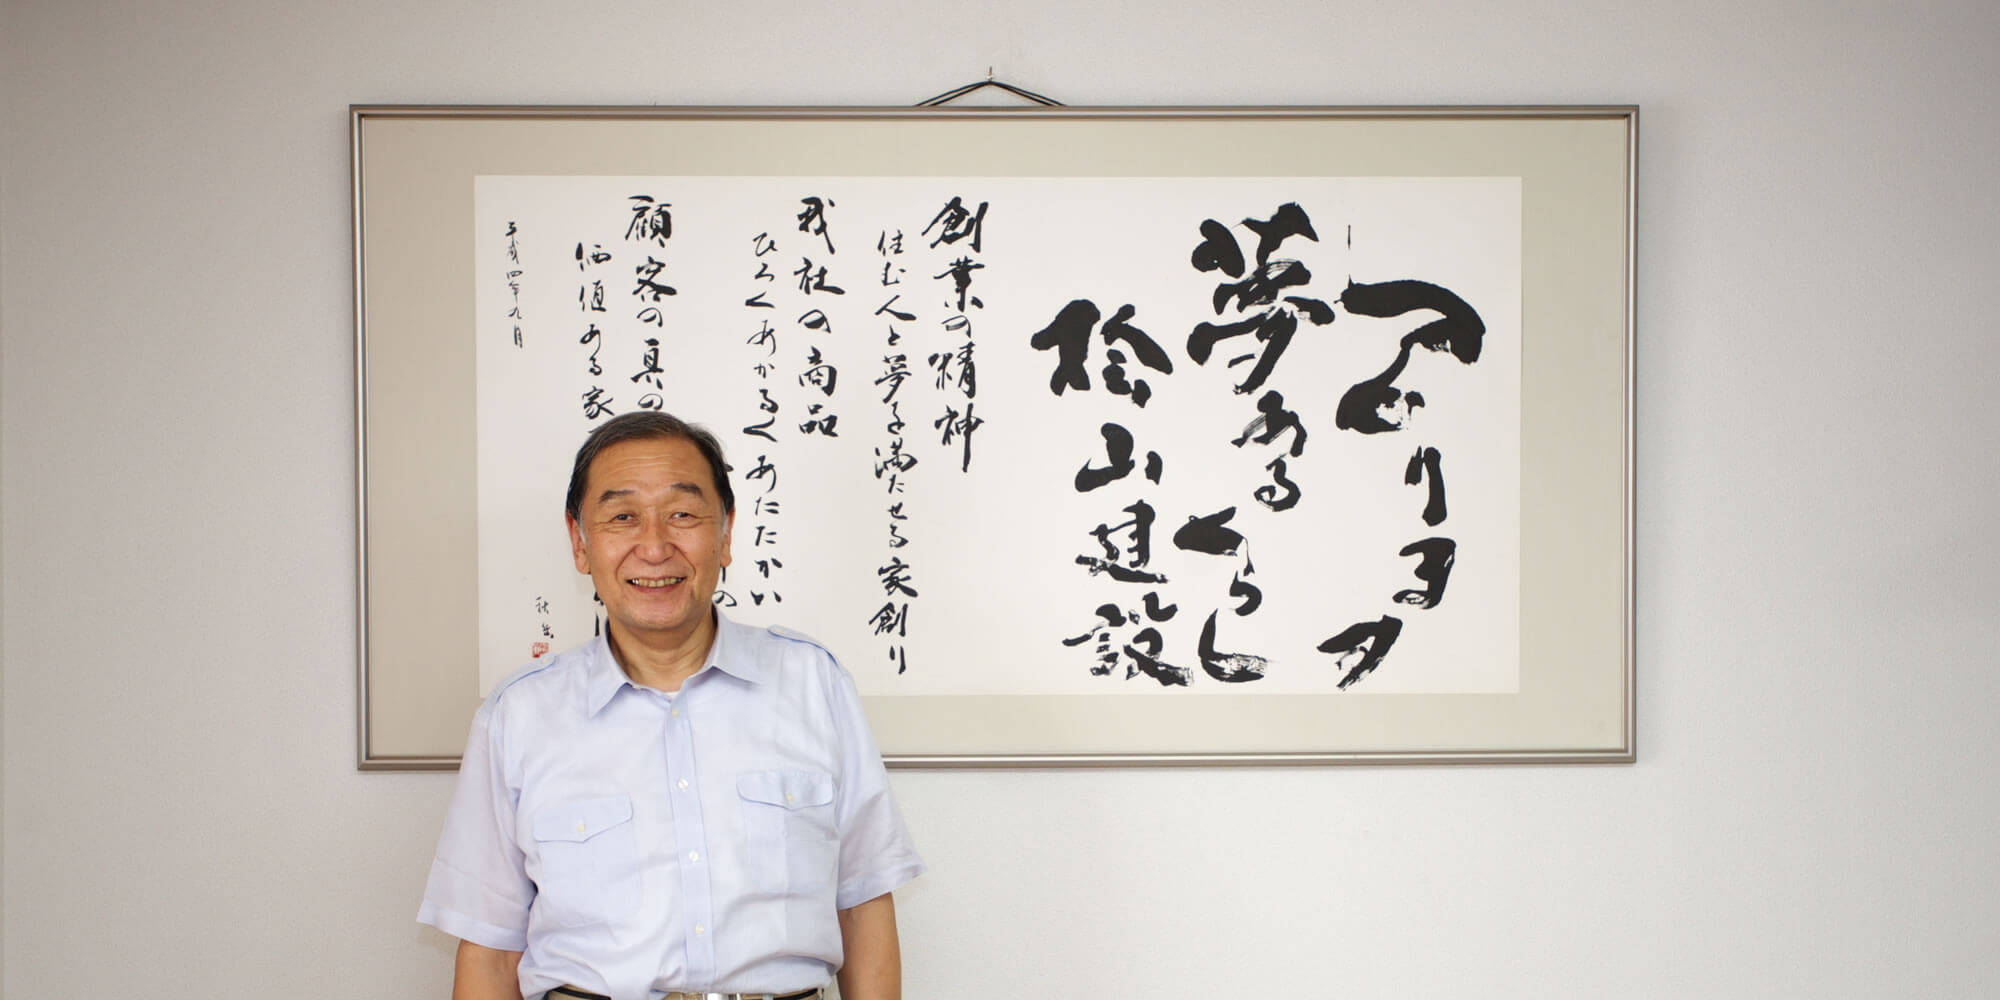 夢あるくらし
桧山建設
創業の精神
住む人と夢を満たせる家創り
我社の商品
ひろくあかるくあたたかい
顧客の真の
価値ある家
平成四年九月